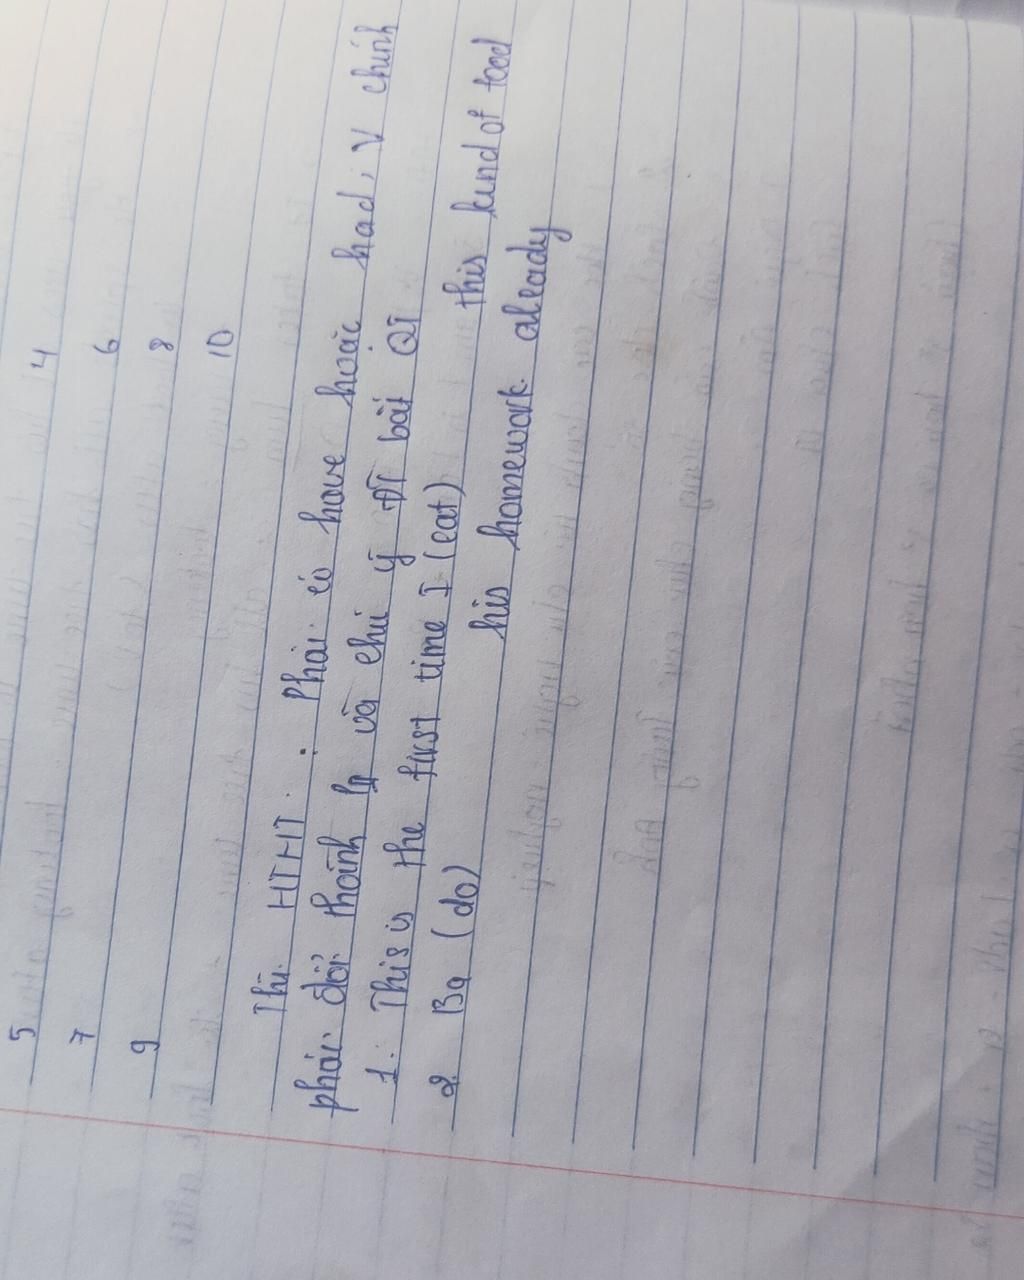 4
5
6
7
8
9
10
Thì HTHT : Phải có have hoặc had, V chính
phải đổi thành và chú ý ĐT bất QT
1. This is the first time I (eat) this kind of food
2. Ba (do) his homework already